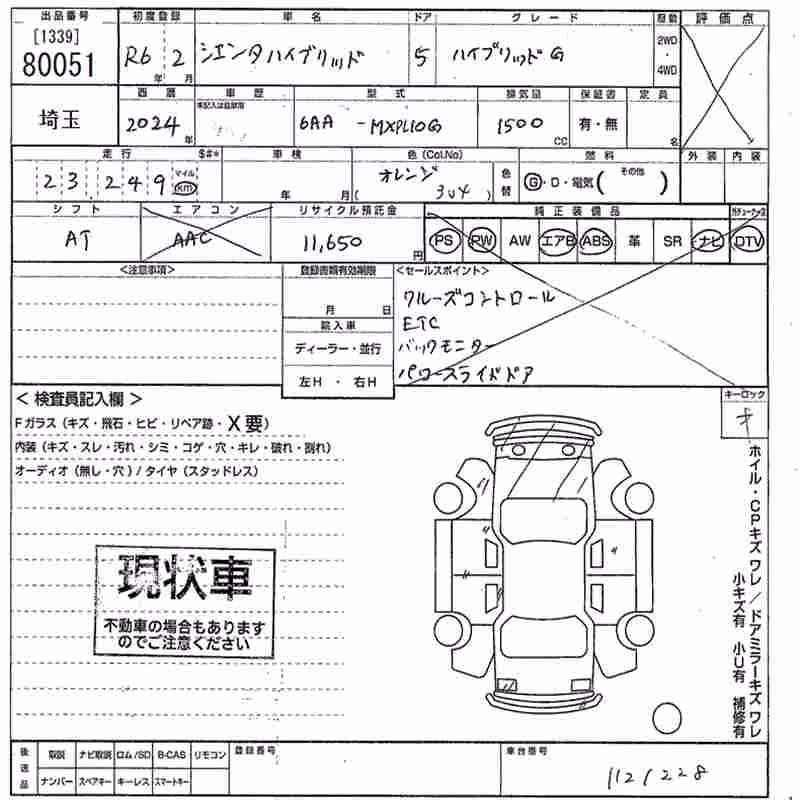 出品番号 初度登録 車名 ドア グレード 駆動 評価点
[1339]
80051 R6 2 シエンタハイブリッド 5 ハイブリッドG 2WD・4WD
年 月
埼玉 西暦 車歴 型式 排気量 保証書 定員
未記入は自家用
2024 6AA -MXPL10G 1500 有・無
年 CC 名
走行 $#* 車検 色(Col.No) 燃料 外装 内装
23,249 マイル km 年 月 オレンジ ( 3U4 ) 色替 G・D・電気( その他 )
シフト エアコン リサイクル預託金 純正装備品
AT AAC 11,650 円 PS PW AW エアB ABS 革 SR ナビ DTV
<注意事項> 登録書類有効期限 <セールスポイント>
月 日
クルーズコントロール
ETC
バックモニター
パワースライドドア
輸入車
ディーラー・並行
左H・右H
キーロック
< 検査員記入欄 >
Fガラス(キズ・飛石・ヒビ・リペア跡・X要)
内装(キズ・スレ・汚れ・シミ・コゲ・穴・キレ・破れ・割れ)
オーディオ(無し・穴)/タイヤ(スタッドレス)
現状車
不動車の場合もあります
のでご注意ください
ホイル・CPキズワレ/ドアミラーキズワレ
小キズ有 小U有 補修有
後送品 取説 ナビ取説 ロム/SD B-CAS リモコン 登録番号 車台番号
ナンバー スペアキー キーレス スマートキー
1121228